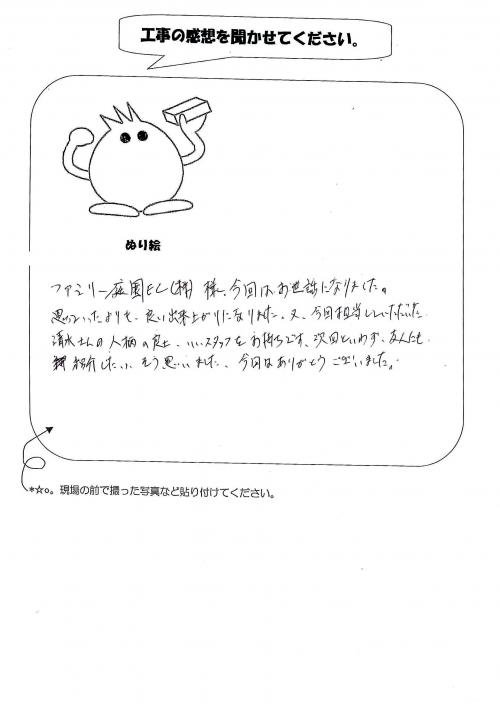 工事の感想を聞かせてください。
ぬり絵
ファミリー庭園EC(株) 様、今回はお世話になりました。
思っていたよりも、良い出来上がりになりました。又、今回担当していただいた
清水さんの人柄の良さ、いいスタッフをお持ちです、次回といわず、友人にも
紹介したい、そう思いました、今回はありがとうございました。
*☆o。現場の前で撮った写真など貼り付けてください。